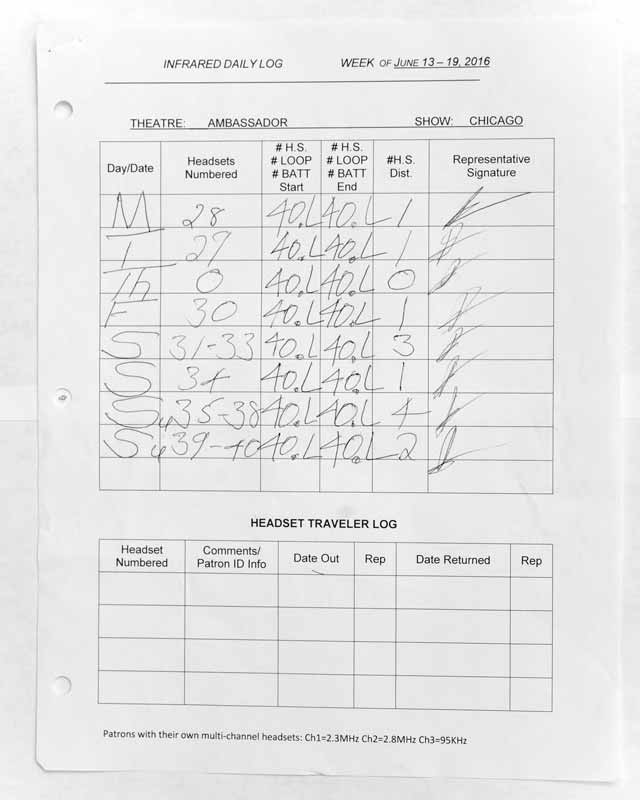 INFRARED DAILY LOG WEEK OF JUNE 13 – 19, 2016
THEATRE: AMBASSADOR SHOW: CHICAGO
Day/Date Headsets Numbered # H.S. # LOOP # BATT Start # H.S. # LOOP # BATT End #H.S. Dist. Representative Signature
M 28 40.L 40.L 1
T 29 40.L 40.L 1
Th 0 40.L 40.L 0
F 30 40.L 40.L 1
S 31-33 40.L 40.L 3
S 34 40.L 40.L 1
Su 35-38 40.L 40.L 4
Su 39-40 40.L 40.L 2
HEADSET TRAVELER LOG
Headset Numbered Comments/ Patron ID Info Date Out Rep Date Returned Rep
Patrons with their own multi-channel headsets: Ch1=2.3MHz Ch2=2.8MHz Ch3=95KHz